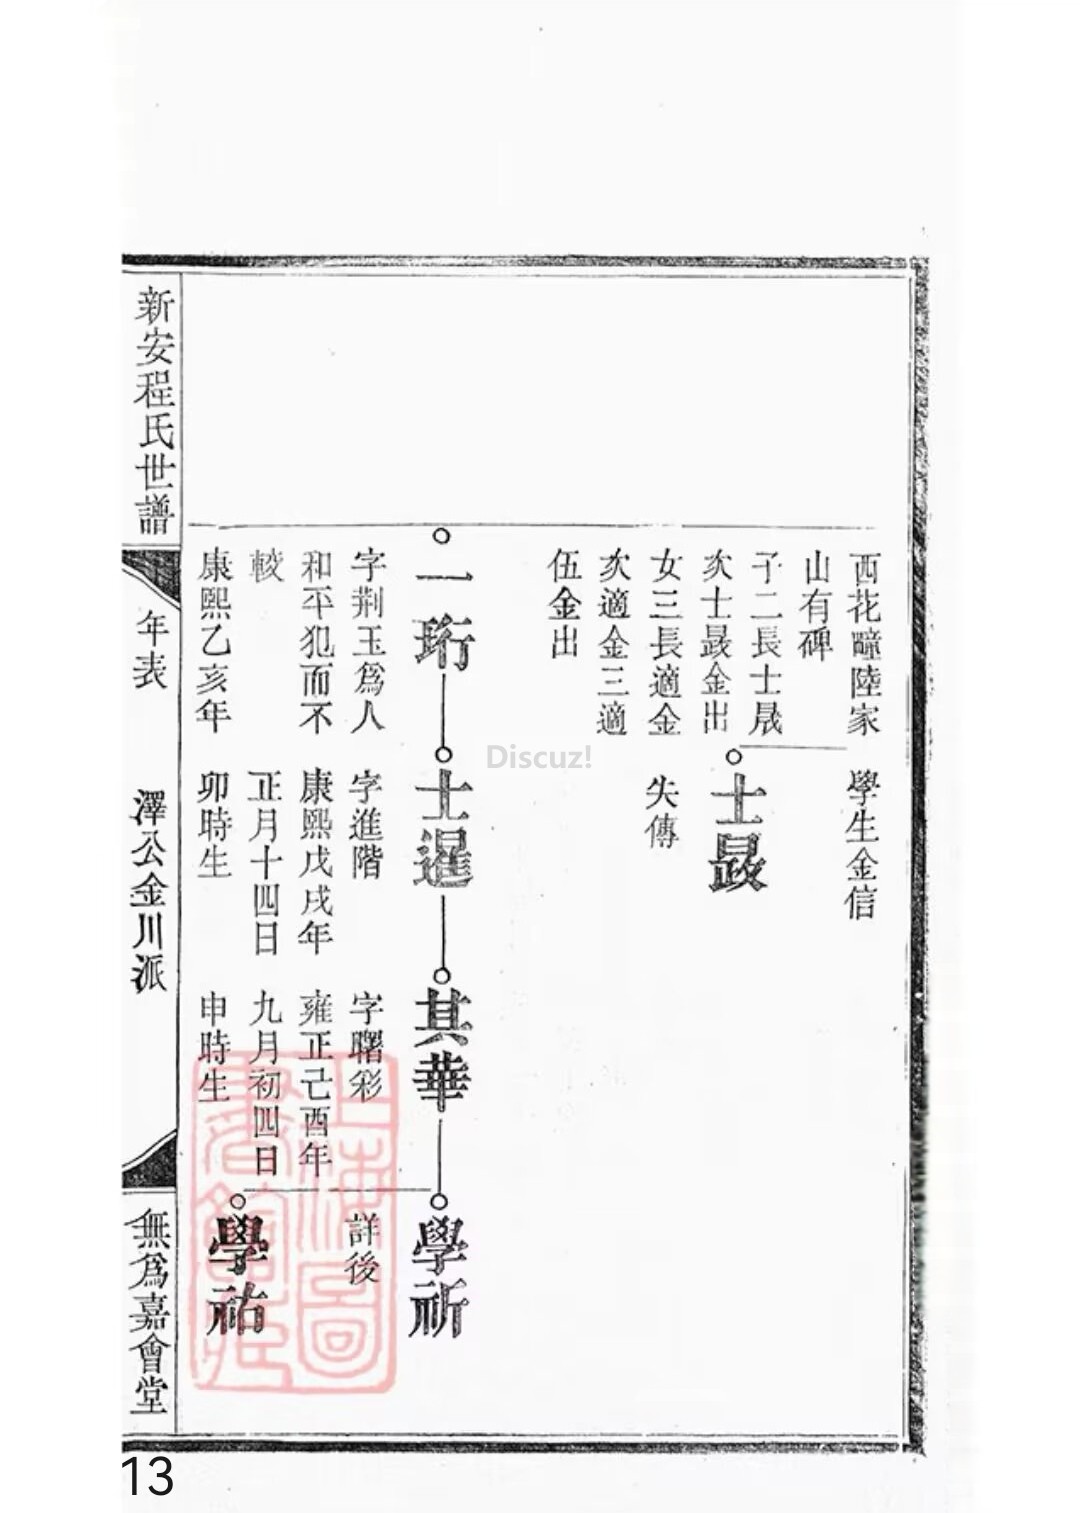 西花疃陸家
山有碑
子二長士晟
次士晸金出
女三長適金
次適金三適
伍金出
學生金信
士晸
失傳
一珩
字荆玉爲人
和平犯而不
較
康熙乙亥年
士暹
字進階
康熙戊戌年
正月十四日
卯時生
其華
字曙彩
雍正己酉年
九月初四日
申時生
學祈
詳後
學祐
新安程氏世譜
年表
澤公金川派
無爲嘉會堂
上海圖書館藏
Discuz!
13